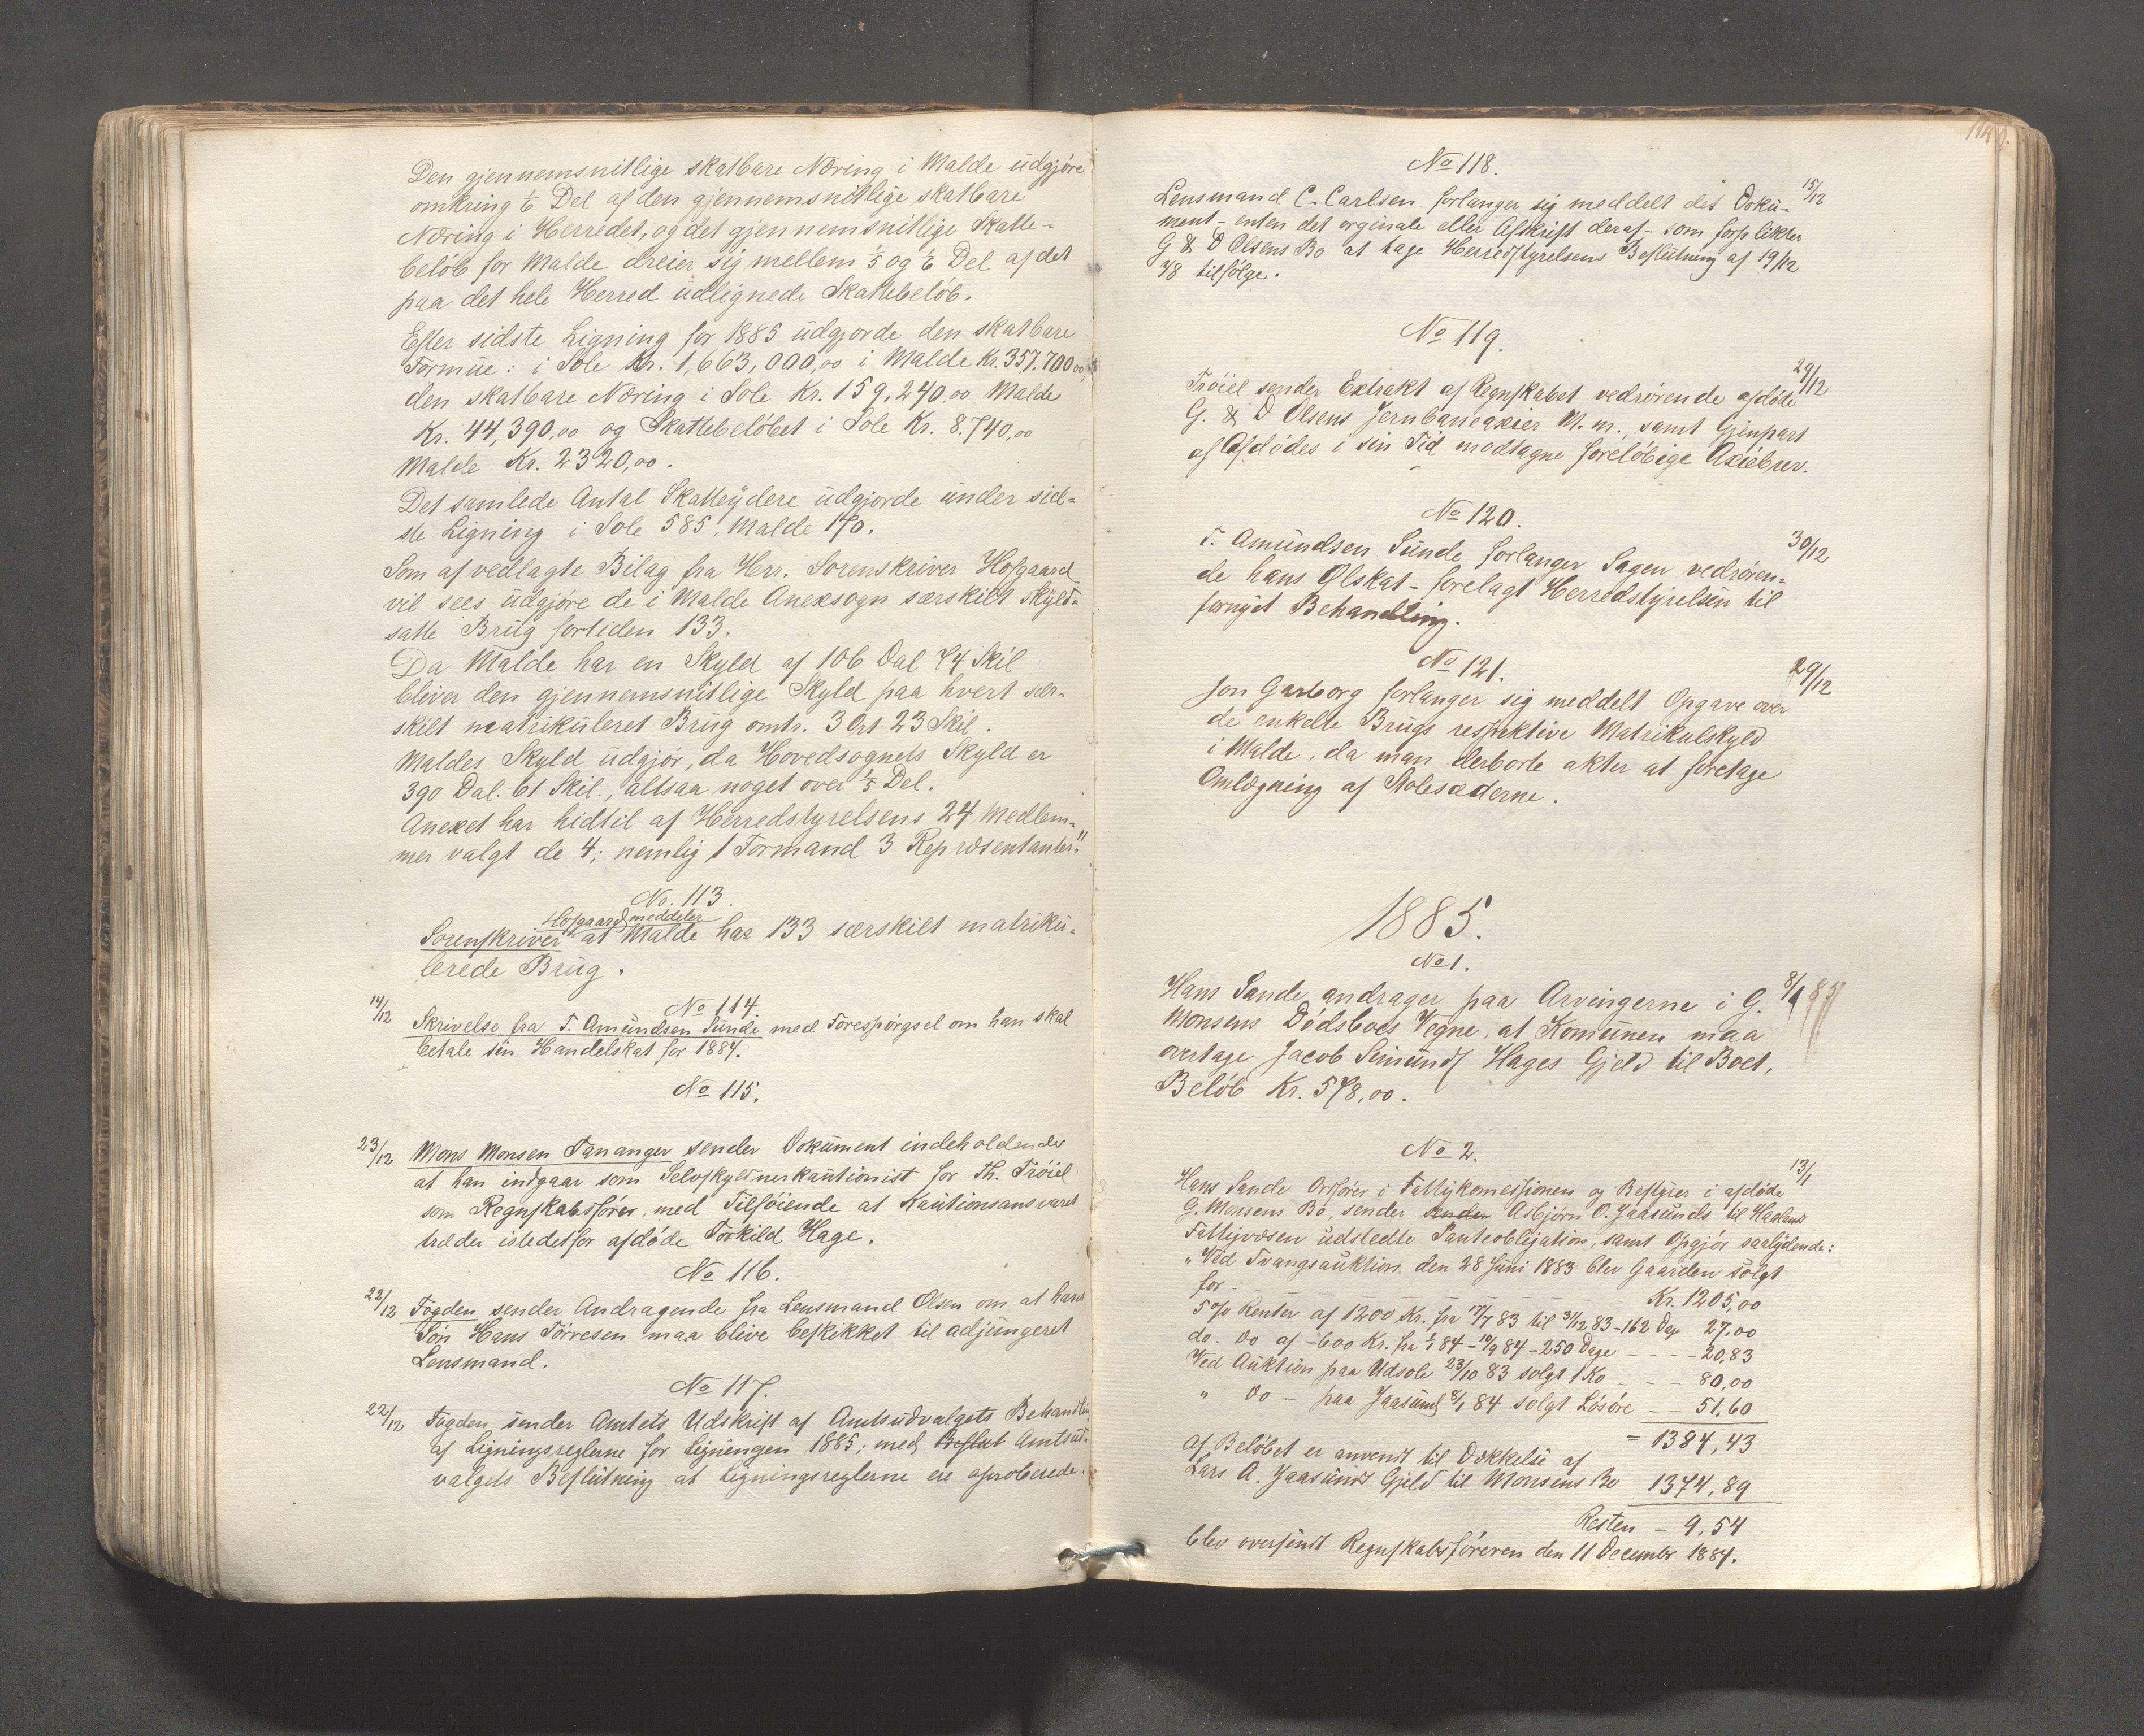 Den gjennemsnitlige skatbare Næring i Malde udgjøre
omkring 1/6 Del af den gjennemsnitlige skatbare
Næring i Herredet, og det gjennemsnitlige Skatte-
beløb for Malde dreier sig mellem 1/5 og 1/6 Del af det
paa det hele Herred udlignede Skattebeløb.
Efter sidste Ligning for 1885 udgjorde den skatbare
Formue: i Sole Kr. 1,663,000,00 i Malde Kr. 357.700,00
den skatbare Næring i Sole Kr. 159,240,00 Malde
Kr. 44,390,00 og Skattebeløbet i Sole Kr. 8.740,00
Malde Kr. 2320,00.
Det samlede Antal Skatteydere udgjorde under sid-
ste Ligning i Sole 585, Malde 170.
Som af vedlagte Bilag fra Herr. Sorenskriver Hofgaard
vil sees udgjøre de i Malde Anexsogn særskilt skyld-
satte Brug fortiden 133.
Da Malde har en Skyld af 106 Dal 74 Skil
bliver den gjennemsnitlige Skyld paa hvert sær-
skilt matrikuleret Brug omtr. 3 Ort 23 Skil.
Maldes Skyld udgjør, da Hovedsognets Skyld er
390 Dal. 61 Skil., altsaa noget over 1/5 Del.
Anexet har hidtil af Herredstyrelsens 24 Medlem-
mer valgt de 4; nemlig 1 Formand 3 Repræsentanter."
No. 113.
Hofgaard meddeler
Sorenskriver at Malde har 133 særskilt matriku-
lerede Brug.
No 114.
14/12 Skrivelse fra T. Amundsen Sunde med Forespørgsel om han skal
betale sin Handelskat for 1884.
No 115.
23/12 Mons Monsen Tananger sender Dokument indeholdende
at han indgaar som Selvskyldnerkautionist for Th. Trøiel
som Regnskabsfører, med Tilføiende at Kautionsansvaret
træder istedetfor afdøde Torkild Hage.
No 116.
22/12 Fogden sender Andragende fra Lensmand Olsen om at hans
Søn Hans Tørresen maa blive beskikket til adjungeret
Lensmand.
No 117.
22/12 Fogden sender Amtets Udskrift af Amtsudvalgets Behandling
af Ligningsreglerne for Ligningen 1885; med Beslut Amtsud-
valgets Beslutning at Ligningsreglerne ere aproberede.
No 118.
Lensmand C. Carlsen forlanger sig meddelt det Doku- 15/12
ment - enten det orginale eller Afskrift deraf - som forplikter
G & D Olsens Bo at tage Herredstyrelsens Beslutning af 19/12
78 tilfølge.
No 119.
29/12
Trøiel sender Extrakt af Regnskabet vedrørende afdøde
G. & D Olsens Jernbaneaxier M. m., samt Gjenpart
af Afdødes i sin Tid modtagne foreløbige Axiebrev.
No 120.
T. Amundsen Sunde forlanger Sagen vedrøren- 30/12
de hans Ølskat - forelagt Herredstyrelsen til
fornyet Behandling.
No 121.
29/12
Jon Garborg forlanger sig meddelt Opgave over
de enkelte Brugs respektive Matrikulskyld
i Malde, da man derborte akter at foretage
Omlægning af Stolesæderne.
1885.
No 1.
Hans Sande andrager paa Arvingerne i G. 8/1 85
Monsens Dødsboes Vegne, at Komunen maa
overtage Jacob Simunds Hages Gjeld til Boet,
Beløb Kr. 578,00.
No 2.
13/1
Hans Sande Orfører i Fattigkomessionen og Bestyrer i afdøde
G. Monsens Bo, sender sender Asbjørn O. Jaasunds til Haalands
Fattigvæsen udstedte Panteobligation, samt Opgjør saalydende:
"Ved Tvangsauktion den 28 Juni 1883 blev Gaarden solgt
for - - - - - - Kr. 1205,00
5 o/o Renter af 1200 Kr. fra 17/7 83 til 31/12 83 - 162 Dage 27,00
do. Do af - 600 Kr. fra 1/1 84 - 10/9 84 - 250 Dage - - - 20,83
Ved Auktion paa Udsole 23/10 83 solgt 1 Ko - - - 80,00
" Do - paa Jaasund 8/1 84 solgt Løsøre - - 51,60
= 1384,43
Af Beløbet er anvendt til Dækkelse af
Lars A. Jaasunds Gjeld til Monsens Bo 1374,89
Resten - 9,54
blev oversendt Regnskabsføreren den 11 December 1884.